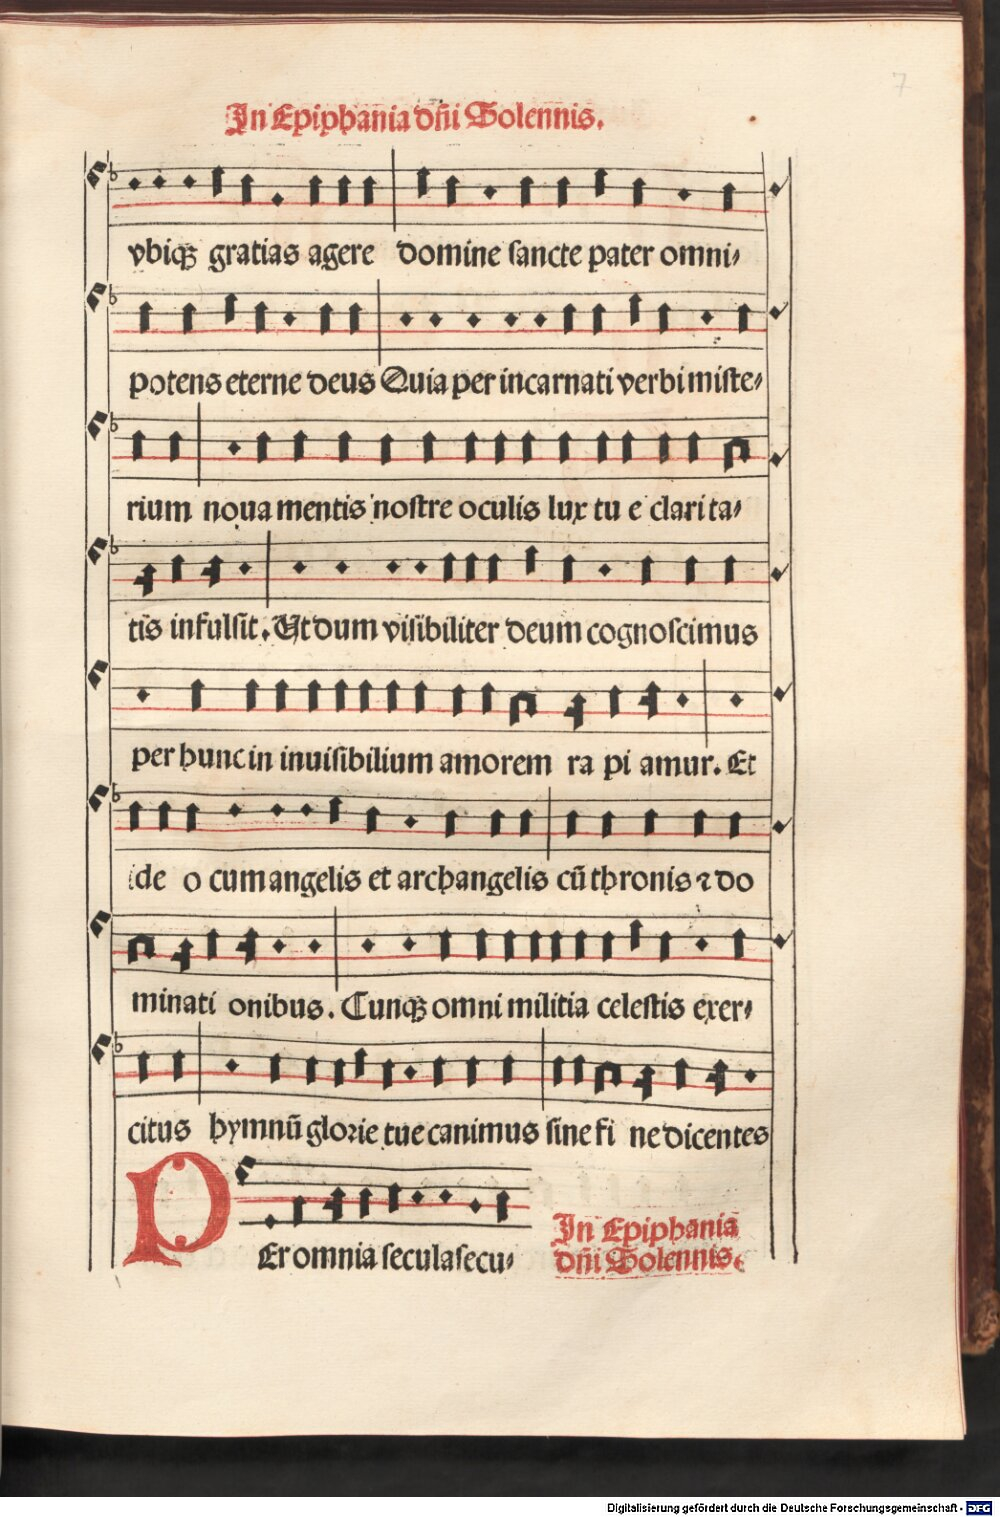 7
In Epiphania dñi Solennis.
vbiqꝫ gratias agere domine sancte pater omni⸗
potens eterne deus Quia per incarnati verbi miste⸗
rium noua mentis nostre oculis lux tu e clari ta⸗
tis infulsit. Ut dum visibiliter deum cognoscimus
per hunc in inuisibilium amorem ra pi amur. Et
ide o cum angelis et archangelis cũ thronis ⁊ do
minati onibus. Cunqꝫ omni militia celestis exer⸗
citus hymnũ glorie tue canimus sine fi ne dicentes
PEr omnia secula secu⸗
In Epiphania
dñi Solennis.
Digitalisierung gefördert durch die Deutsche Forschungsgemeinschaft - DFG